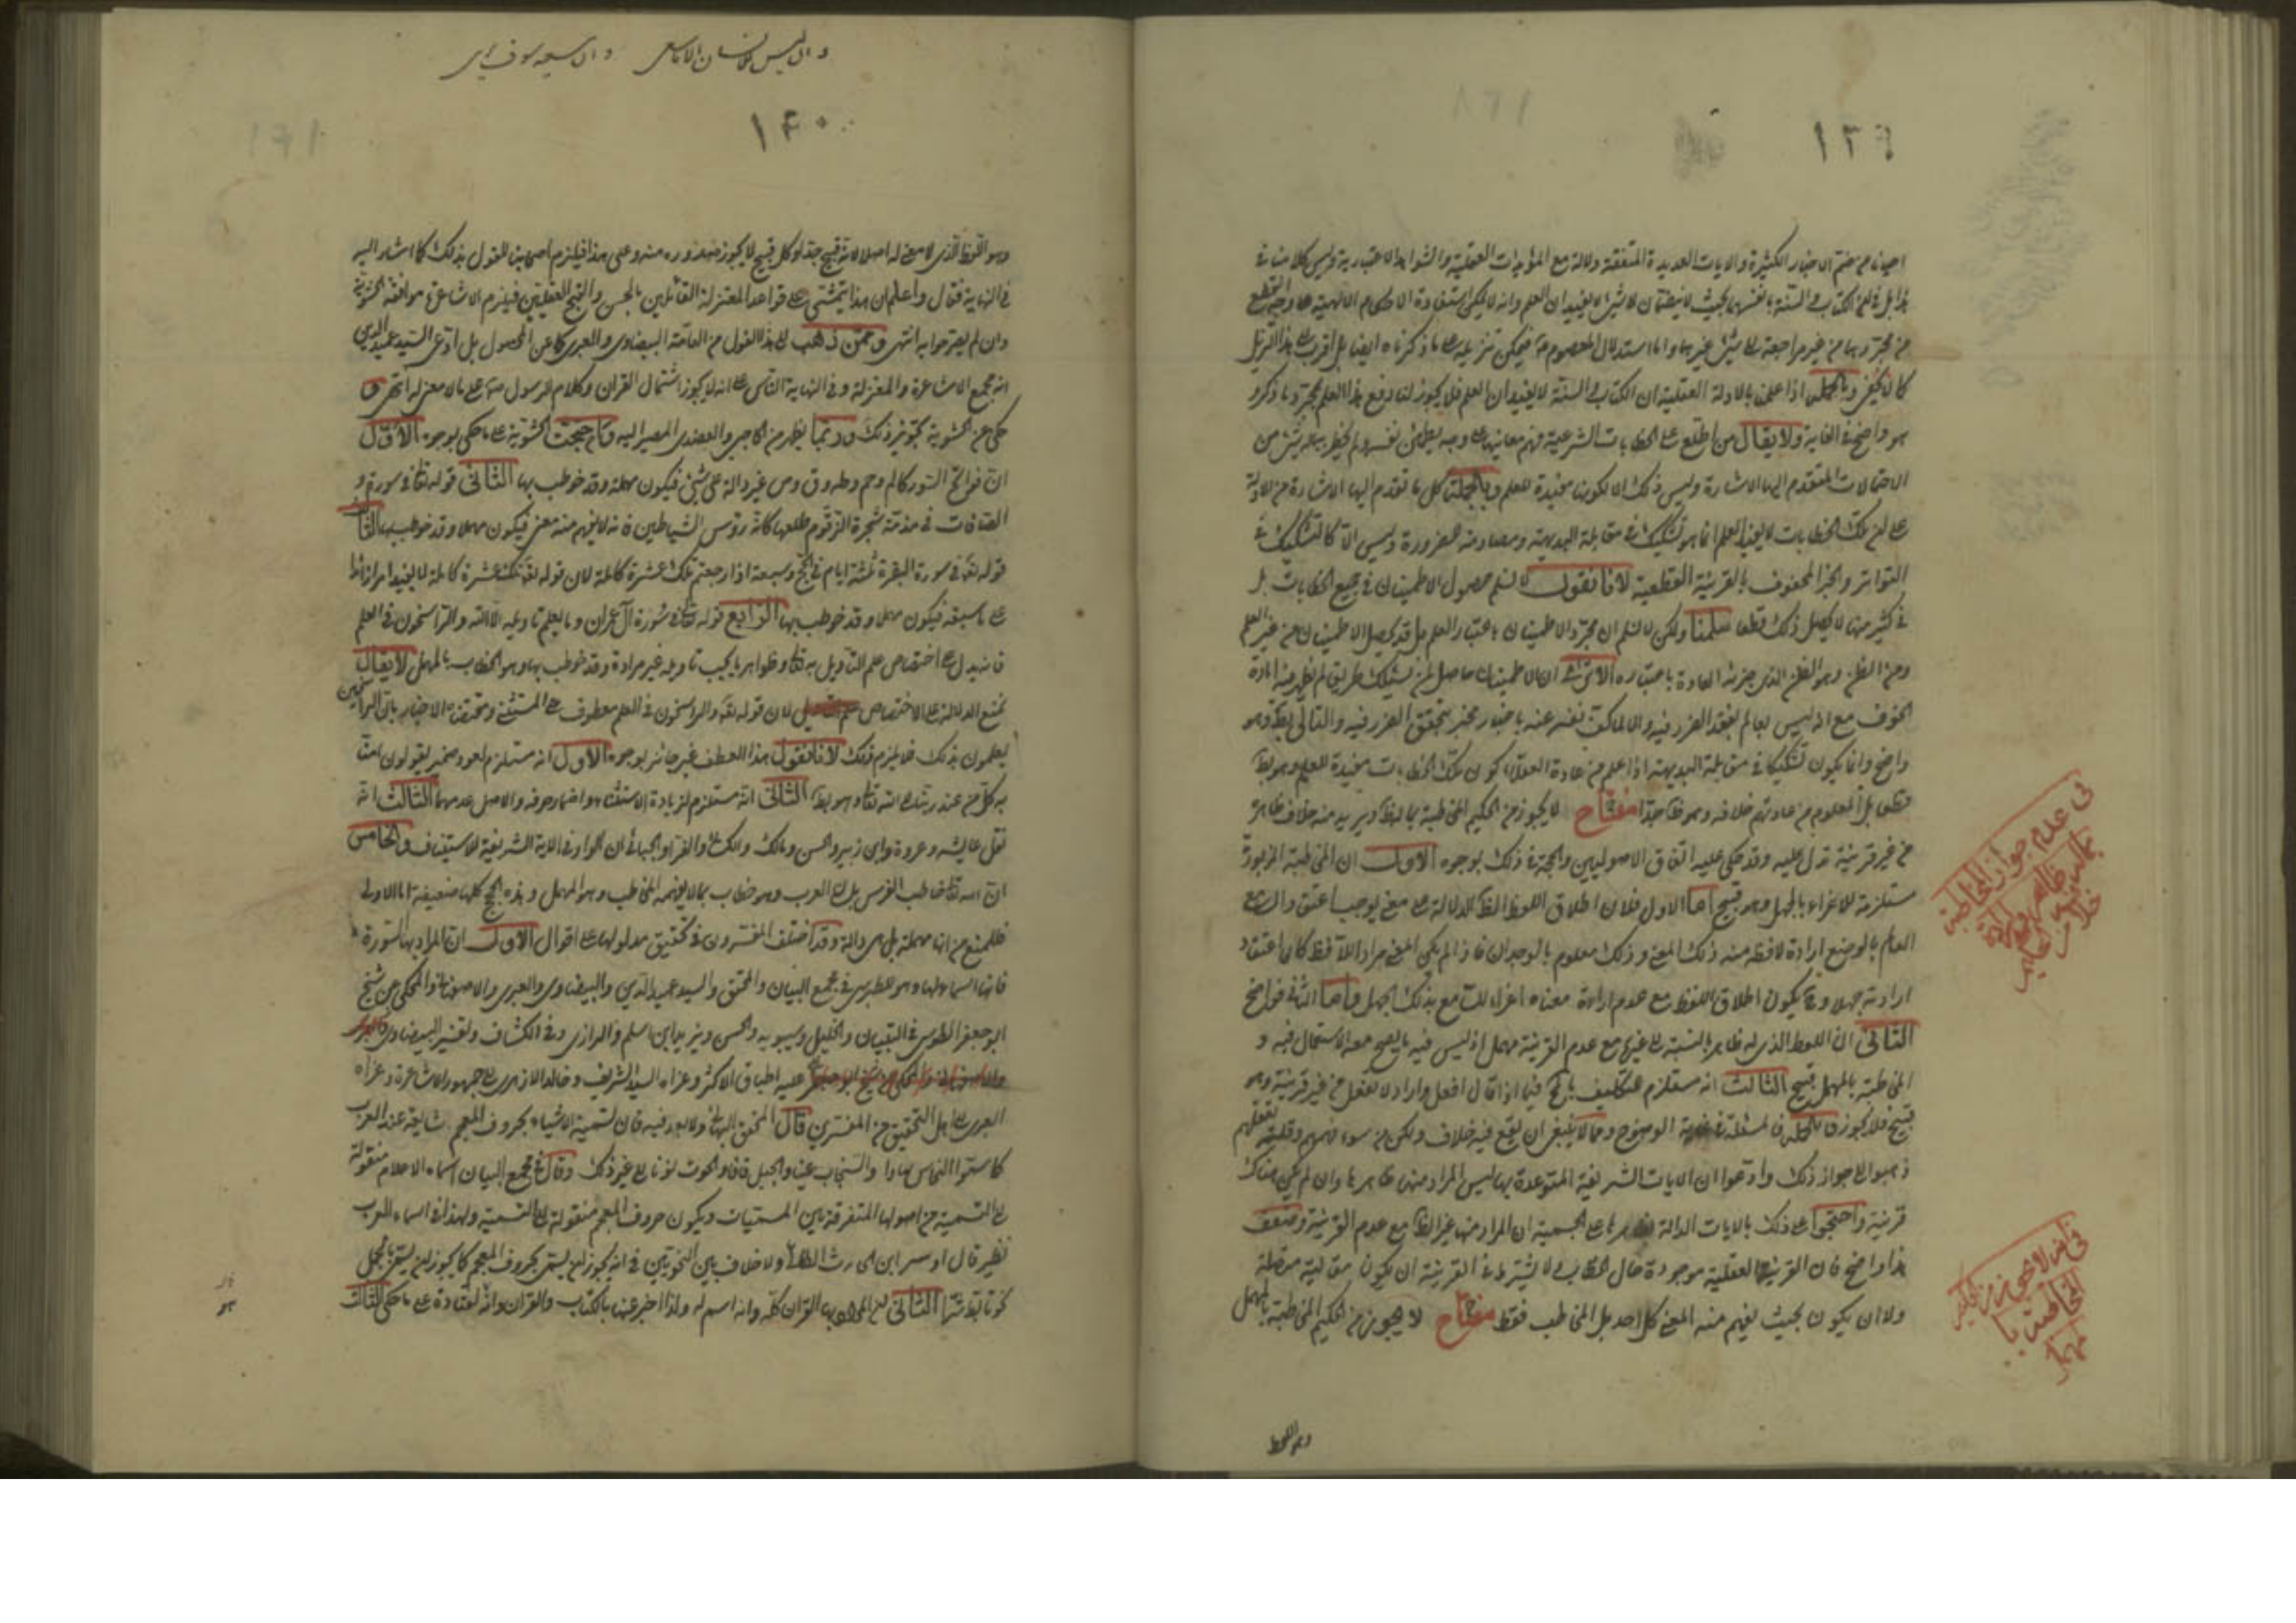 ١٣٩
احيانا من ضم الاخبار الكثيرة والايات العديدة المتفقة دلالة مع المؤيدات العقلية والشواهد الاعتبارية وليس كلامنا في
هذا بل في ان الكتاب والسنة بانفسهما بحيث لا ينضمان لا شئ لا يفيدان العلم وانه لا يمكن استفادة الاحكام الالهية على وجه القطع
من مجردهما من غير مراجعة الى شئ غيرهما واما استدلال المعصوم فيمكن تنزيله على ما ذكرناه ايضا بل اقرب الى هذا التنزيل
كما لا يخفى وبالجملة اذا علمنا بالادلة العقلية ان الكتاب والسنة لا يفيدان العلم فلا يجوز لنا دفع هذا العلم بمجرد ما ذكر و
هو واضح في الغاية ولا يقال من اطلع على الخطابات الشرعية فهم معانيها على وجه يطمئن نفسه ولم يخطر بباله شئ من
الاحتمالات المتقدم اليها الاشارة وليس ذلك الا لكونها مفيدة للعلم وبالجملة كل ما تقدم اليها الاشارة من الادلة
على ان تلك الخطابات لا يفيد العلم انما هو تشكيك في مقابلة البديهة ومصادمة الضرورة وليس الا كالتشكيك في
التواتر والخبر المحفوف بالقرينة القطعية لانا نقول لا نسلم حصول الاطمينان في جميع الخطابات بل
في كثير منها لا يحصل ذلك قطعا سلمنا ولكن لا نسلم ان مجرد الاطمينان باعتبار العلم بل قد يحصل الاطمينان من غير العلم
ومن الظن وهو الظن الذي جرت العادة باعتباره الا ترى ان الاطمينان حاصل لمن يسلك طريق لم يظهر فيه امارة
الخوف مع انه ليس بعالم بفقد الضرر فيه والا لما كذب نفسه عند باخبار مخبر بتحقق الضرر فيه والتالي بط وهو
واضح وانما يكون تشكيكا في مقابلة البديهة اذا علم من عادة العقلاء كون تلك الخطابات مفيدة للعلم وهو بط
قطعا بل المعلوم من عادتهم خلافه وهو ظ جدا مفتاح لا يجوز من الحكيم المخاطبة بما له ظ ويريد منه خلاف ظاهره
من غير قرينة تدل عليه وقد حكى عليه اتفاق الاصوليين والحجة في ذلك بوجوه الاول ان المخاطبة المزبورة
مستلزمة للاغراء بالجهل وهو قبيح اما الاول فلان اطلاق اللفظ الظ الدلالة على معنى يوجب اعتقاد السامع
العالم بالوضع ارادة لافظه منه ذلك المعنى وذلك معلوم بالوجدان فاذا لم يكن المعنى مراد اللافظ كان اعتقاد
ارادته جهلا وح يكون اطلاق اللفظ مع عدم ارادة معناه اغراء للسامع بذلك الجهل واما الثاني فواضح
الثاني ان اللفظ الذي له ظاهر بالنسبة الى غيره مع عدم القرينة مهمل اذ ليس فيه ما يصح معه الاستعمال فيه و
المخاطبة بالمهمل قبيح الثالث انه مستلزم للتكليف بالمح فيما اذا قال افعل واراد لا تفعل من غير قرينة وهو
قبيح فلا يجوز وبالجملة المسئلة في غاية الوضوح ومما لا ينبغي ان يقع فيه خلاف ولكن من سوء فهمهم وقلة تعقلهم
ذهبوا الى جواز ذلك وادعوا ان الايات الشريفة المتوعدة بها ليس المراد منها ظاهرها وان لم يكن هناك
قرينة واحتجوا على ذلك بالايات الدالة ظاهرها على الجسمية ان المراد منها غير الظ مع عدم القرينة وضعف
هذا واضح فان القرينة العقلية موجودة حال الخطاب ولا يشترط في القرينة ان يكون مقالية متصلة
ولا ان يكون بحيث يفهم منه المعنى كل احد بل المخاطب فقط مفتاح لا يجوز من الحكيم المخاطبة بالمهمل
في عدم جواز المخاطبة
بما له ظاهر وارادة
خلاف ظاهره
في انه لا يجوز من الحكيم
المخاطبة با
لمهمل
وهو اللفظ
١٤٠
وهو اللفظ الذي لا معنى له اصلا لانه قبيح جدا وكل قبيح لا يجوز صدوره منه وعلى هذا فيلزم اصحابنا القول بذلك كما اشار اليه
في النهاية فقال واعلم ان هذا يتمشى على قواعد المعتزلة القائلين بالحسن والقبح العقليين فيلزم الاشاعرة موافقة الحشوية
وان لم يصرحوا به انتهى وممن ذهب الى هذا القول من العامة البيضاوي والعبري كما عن المحصول بل ادعى السيد عميد الدين
انه مجمع الاشاعرة والمعتزلة وفي النهاية الناس على انه لا يجوز اشتمال القران وكلام الرسول ص على ما لا معنى له انتهى و
حكى عن الحشوية تجويز ذلك وربما يظهر من الحاجبي والعضدي المصير اليه وقام حجت الحشوية على ما حكى بوجوه الاول
ان فواتح السور كالم وحم وطه وق وص غير دالة على شئ فيكون مهملة وقد خوطب بها الثاني قوله تعالى في سورة و
الصافات في مذمة شجرة الزقوم طلعها كانه رؤس الشياطين فانه لا يفهم منه معنى فيكون مهملا وقد خوطب به الثالث
قوله تعالى في سورة البقرة ثلثة ايام في الحج وسبعة اذا رجعتم تلك عشرة كاملة لان قوله تعالى تلك عشرة كاملة لا يفيد امرا زائدا
على ما سبقه فيكون مهملا وقد خوطب بها الرابع قوله تعالى في سورة آل عمران وما يعلم تاويله الا الله والراسخون في العلم
فانه يدل على اختصاص علم التاويل به تعالى وظواهر ما يجب تاويله غير مرادة وقد خوطب بها وهو الخطاب بالمهمل لا يقال
نمنع الدلالة على الاختصاص لان قوله تعالى والراسخون في العلم معطوف على المستثنى ومقتضاه الاخبار بان الراسخين
يعلمون بذلك فلا يلزم ذلك لانا نقول هذا العطف غير جائز بوجوه الاول انه مستلزم لعود ضمير يقولون امنا
به كل من عند ربنا الى الله تعالى وهو بط الثاني انه مستلزم لزيادة الاستثناء واضمار حرفه والاصل عدمهما الثالث انه
نقل عايشة وعروة وابن زبير والحسن ومالك والكسائي والفراء والجبائي ان الواو في الاية الشريفة للاستيناف والخامس
ان الله تعالى خاطب الفرس بلسان العرب وهو خطاب بما لا يفهمه المخاطب وهو المهمل وهذه الحجج كلها ضعيفة اما الاولى
فللمنع من انها مهملة بل هي دالة وقد اختلف المفسرون في تحقيق مدلولها على اقوال الاول ان المراد بها السورة
فانها اسماء لها وهو للطبرسي في مجمع البيان والمحقق والسيد عميد الدين والبيضاوي والعبري والاصفهاني والمحكي عن شيخ
ابو جعفر الطوسي في التبيان والخليل وسيبويه والحسن ويزيد ابن اسلم والرازي وفي الكشاف وتفسير البيضاوي
عليه اطباق الاكثر وعزاه السيد الشريف وخالد الازهري الى جمهور الاشاعرة وعزاه
العبري الى اهل التحقيق من المفسرين قال المحقق البهائي ولا بعد فيه فان تسمية الاشياء بحروف المعجم شايعة عند العرب
كما سموا النحاس صادا والسحاب عينا والجبل قافا والحوت نونا الى غير ذلك وقال في مجمع البيان اسماء الاعلام منقولة
الى التسمية من اصولها المتفرقة بين المسميات ويكون حروف المعجم منقولة الى التسمية ولهذا في اسماء العرب
نظير قال اوس ابن حارثة الطائي ولا خلاف بين النحويين في انه يجوز ان يسمى بحروف المعجم كما يجوز ان يسمى بالجمل
نحو تابط شرا الثاني ان المراد بها القران كله وانه اسم له ولذا اخبر عنها بالكتاب والقران وانه لقتادة على ما حكى الثالث